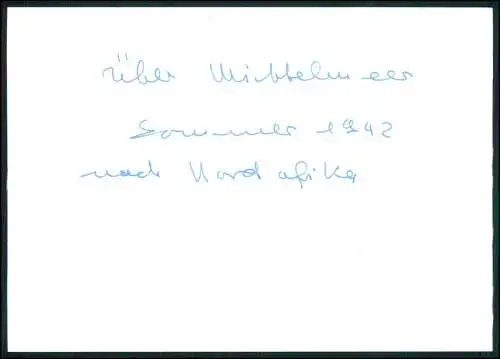 über Mittelmeer
Sommer 1942
nach Nord afrika